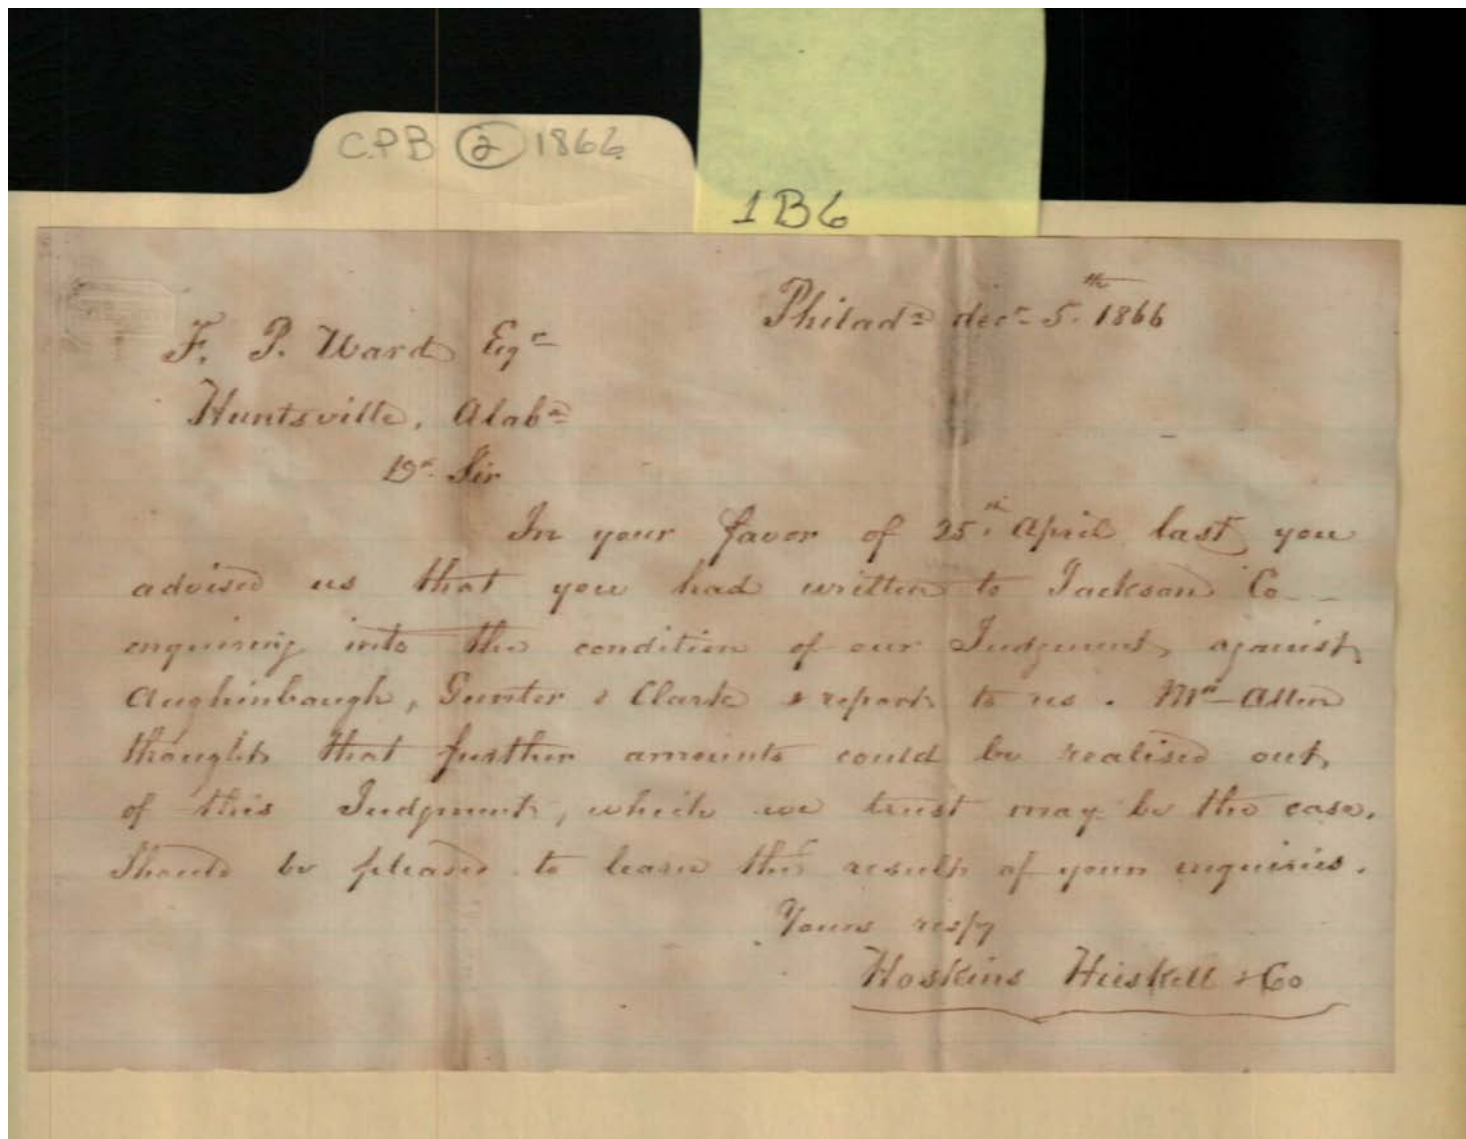 C.P.B ② 1866
1B6
Philadᵃ decʳ 5.ᵗʰ 1866
F. P. Ward Eqʳ
Huntsville, Alabᵃ
Dʳ Sir
In your favor of 25ᵗʰ April last you
advised us that you had written to Jackson Co
enquiring into the condition of our Judgment against
Aughinbaugh, Gunter & Clark & report to us. Mʳ Allen
thought that further amounts could be realised out
of this Judgment, which we trust may be the case.
Should be pleased to learn the result of your enquiries.
Yours respy
Hoskins Hieskell & Co